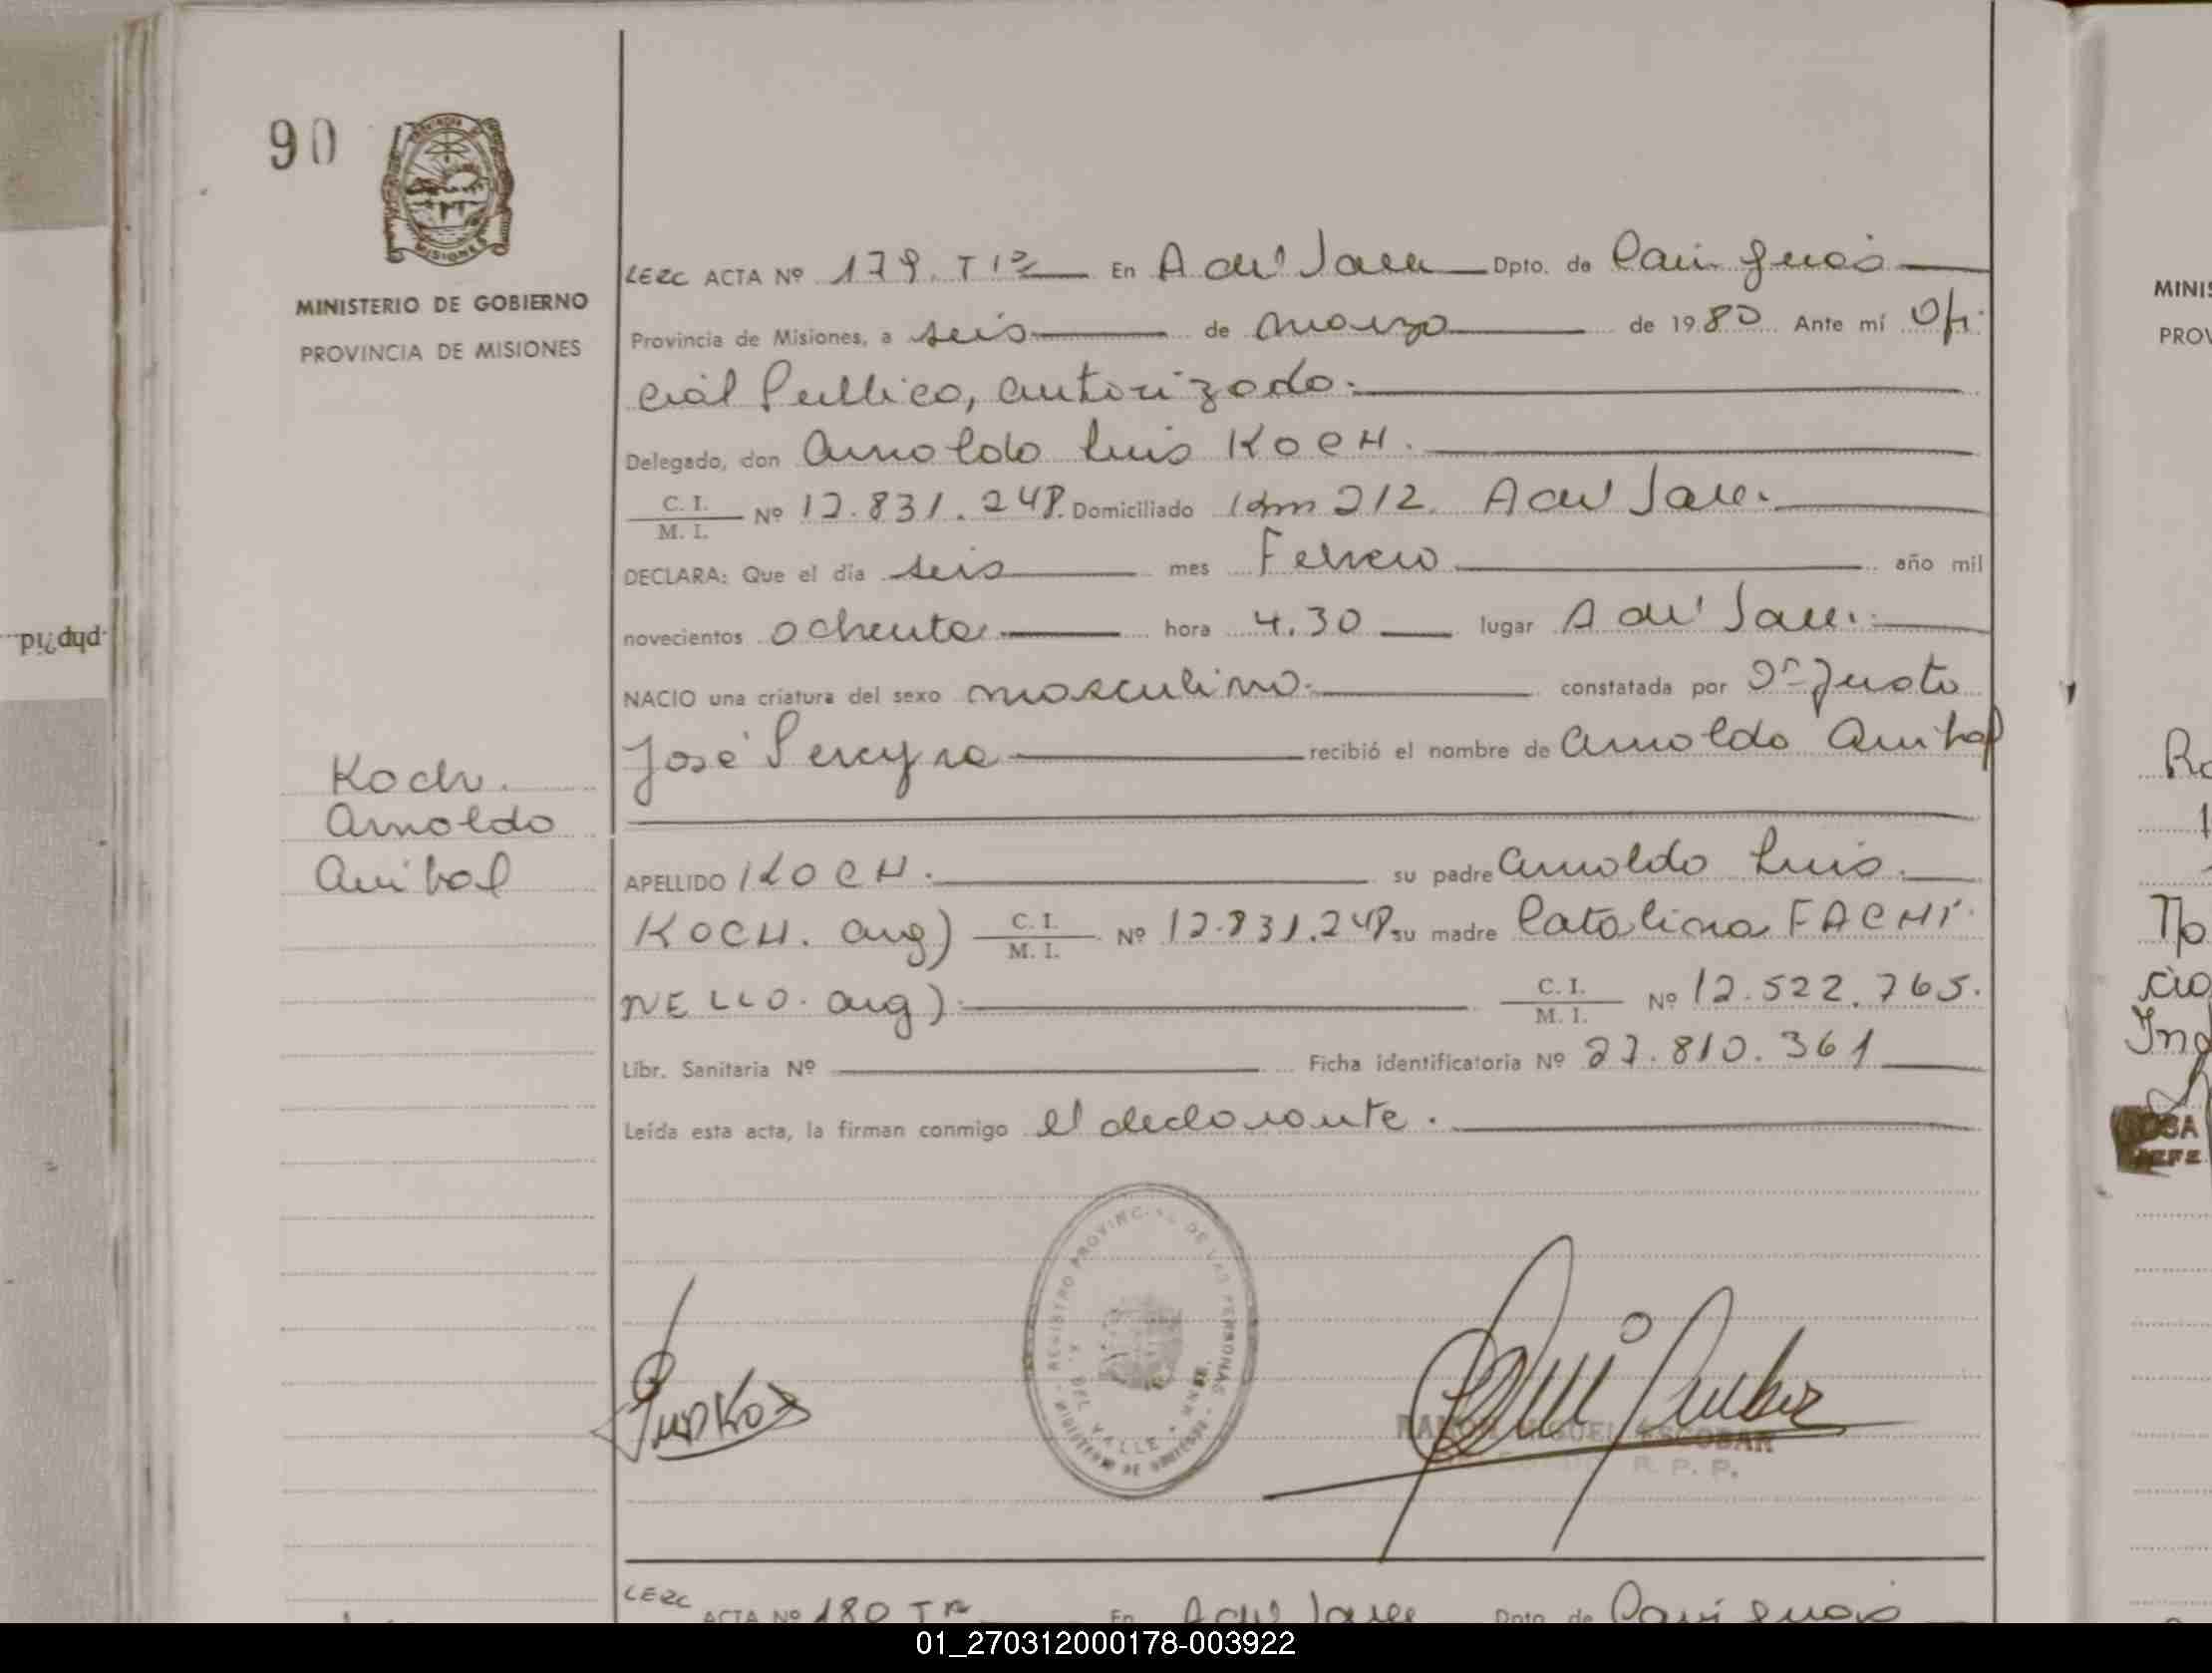 90
PROVINCIA DE
MISIONES
MINISTERIO DE GOBIERNO
PROVINCIA DE MISIONES
LERC ACTA Nº 179. T 1º En A del Valle Dpto. de Cainguás
Provincia de Misiones, a seis de marzo de 1980 Ante mí Ofi-
cial Publico, autorizado.
Delegado, don Arnoldo Luis KOCH.
C. I.
M. I.
Nº 12.831.248. Domiciliado Km 212. A del Valle.
DECLARA: Que el día seis mes Febrero año mil
novecientos ochenta hora 4.30 lugar A del Valle.
NACIO una criatura del sexo masculino. constatada por Dr Justo
José Pereyra recibió el nombre de Arnoldo Anibal
Koch.
Arnoldo
Anibal
APELLIDO KOCH. su padre Arnoldo Luis.
KOCH. arg) C. I.
M. I.
Nº 12.831.248 su madre Catalina FACHI
NELLO. arg). C. I.
M. I.
Nº 12.522.765.
Libr. Sanitaria Nº Ficha identificatoria Nº 27.810.361
Leída esta acta, la firman conmigo el declarante.
REGISTRO PROVINCIAL DE LAS PERSONAS
MINISTERIO DE GOBIERNO
A. DEL VALLE
RAMON MIGUEL ESCOBAR
R. P. P.
LERC ACTA Nº 180 T En A del Valle Dpto. de Cainguás
php?id
MINIS
PROV
01_270312000178-003922